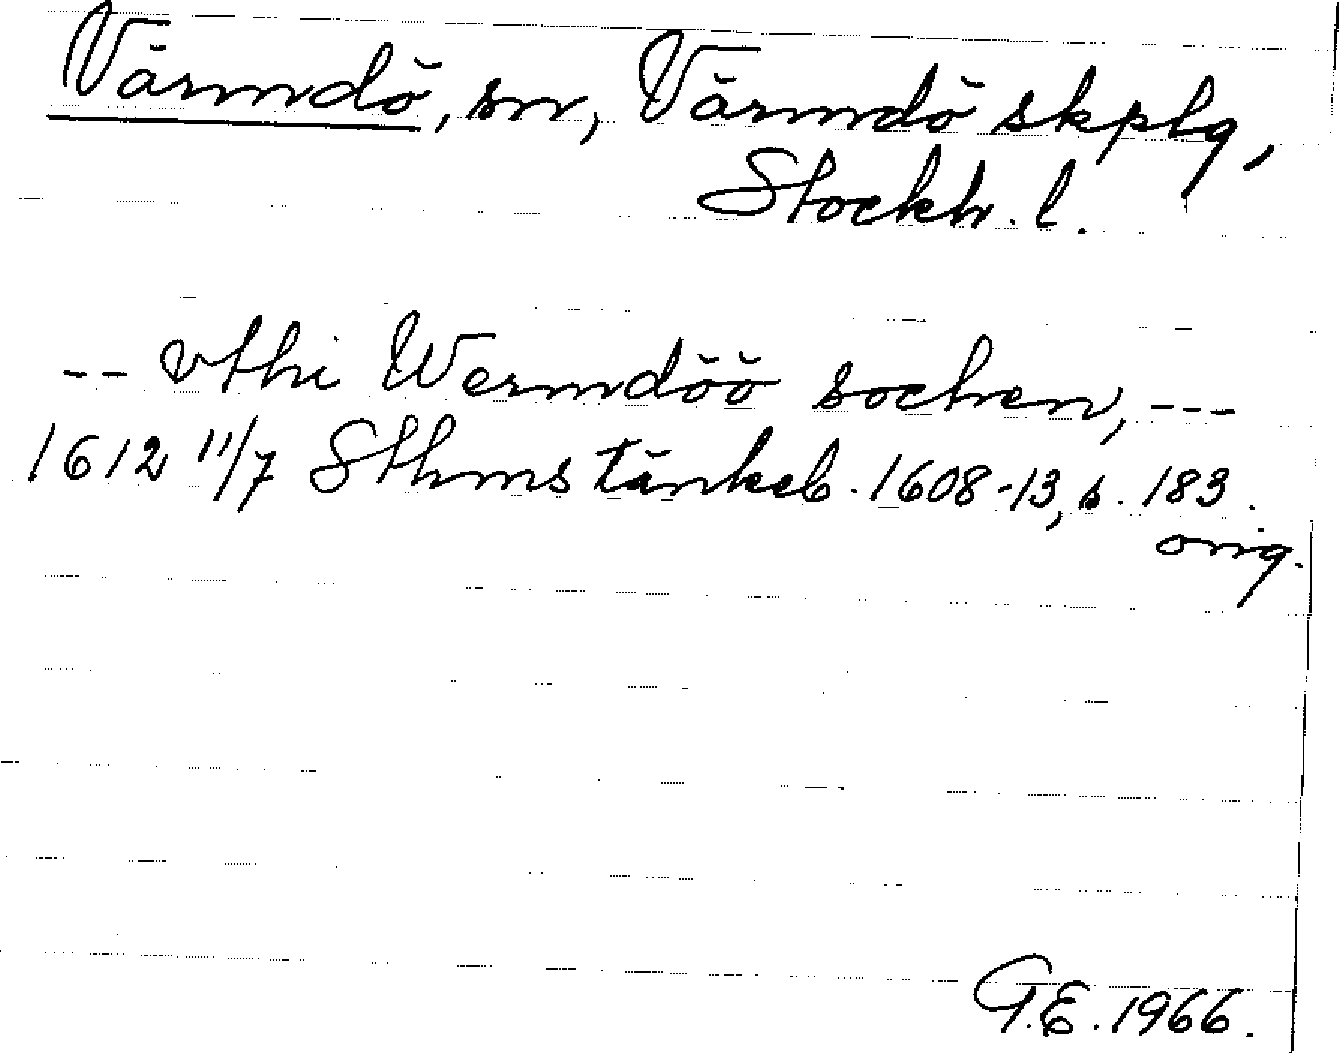 Värmdö, sn, Värmdö skplg,
Stockh. l.
-- vthi Wermdöö sochen, ---
1612 11/7 Sthms tänkeb. 1608-13, s. 183.
orig.
G.E. 1966.